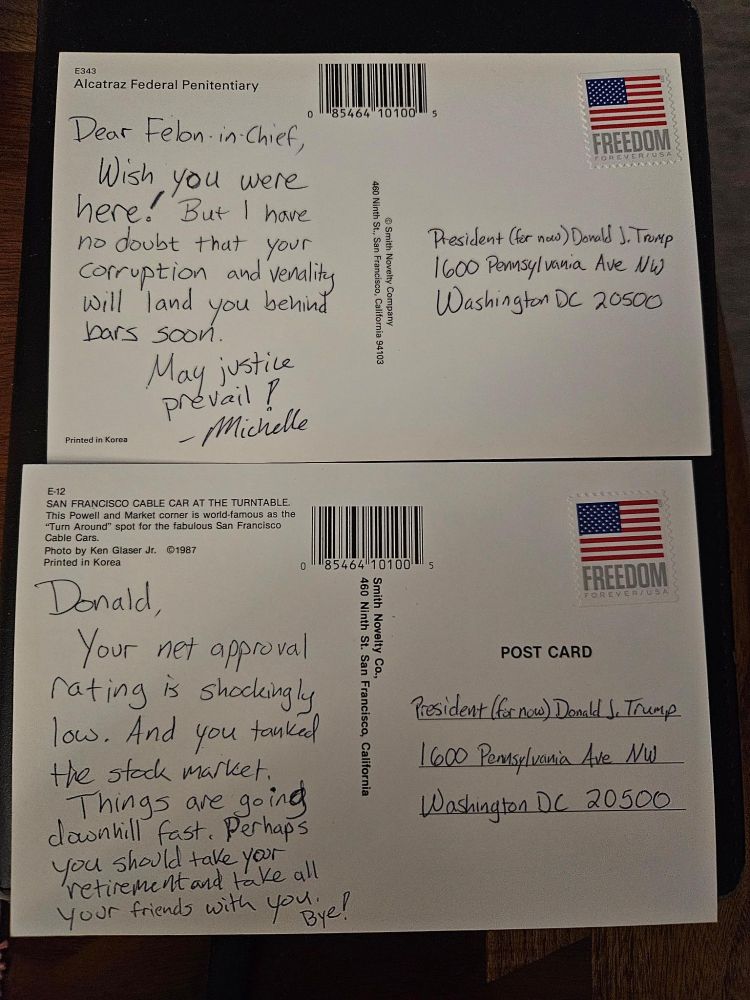 E343
Alcatraz Federal Penitentiary
0 85464 10100 5
FREEDOM
FOREVER/USA
Dear Felon-in-Chief,
Wish you were
here! But I have
no doubt that your
corruption and venality
will land you behind
bars soon.
May justice
prevail!
- Michelle
Printed in Korea
© Smith Novelty Company
460 Ninth St., San Francisco, California 94103
President (for now) Donald J. Trump
1600 Pennsylvania Ave NW
Washington DC 20500
E-12
SAN FRANCISCO CABLE CAR AT THE TURNTABLE.
This Powell and Market corner is world-famous as the
"Turn Around" spot for the fabulous San Francisco
Cable Cars.
Photo by Ken Glaser Jr. ©1987
Printed in Korea
0 85464 10100 5
FREEDOM
FOREVER/USA
Donald,
Your net approval
rating is shockingly
low. And you tanked
the stock market.
Things are going
downhill fast. Perhaps
you should take your
retirement and take all
your friends with you.
Bye!
Smith Novelty Co.,
460 Ninth St. San Francisco, California
POST CARD
President (for now) Donald J. Trump
1600 Pennsylvania Ave NW
Washington DC 20500